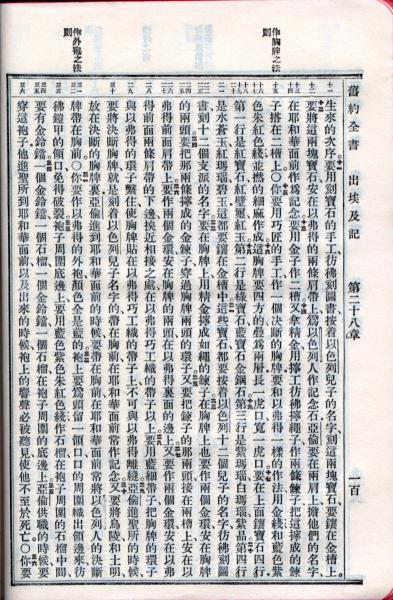 舊約全書 出埃及記 第二十八章 一百
作胸牌之法則
作外袍之法則
生來的次序要用刻寶石的手工彷彿刻圖書按着以色列兒子的名字刻這兩塊寶石要鑲在金槽上
要將這兩塊寶石安在以弗得的兩條肩帶上爲以色列人作記念石亞倫要在兩肩上擔他們的名字
在耶和華面前作爲記念要用金子作二槽又拿精金用擰工彷彿擰繩子作兩條鍊子把這擰成的鍊
子搭在二槽上〇你要用巧匠的手工作一個決斷的胸牌要和以弗得一樣的作法用金綫和藍色紫
色朱紅色綫並撚的細麻作成這胸牌要四方的疊爲兩層長一虎口寬一虎口要在上面鑲寶石四行
第一行是紅寶石紅璧璽紅玉第二行是綠寶石藍寶石金鋼石第三行是紫瑪瑙白瑪瑙紫晶第四行
是水蒼玉紅瑪瑙碧玉這都要鑲在金槽中這些寶石都要按着以色列十二個兒子的名字彷彿刻圖
書刻十二個支派的名字要在胸牌上用精金擰成如繩的鍊子在胸牌上也要作兩個金環安在胸牌
的兩頭要把那兩條擰成的金鍊子穿過胸牌兩頭的環子又要把鍊子的那兩頭接在兩槽上安在以
弗得前面肩帶上要作兩個金環安在胸牌的兩頭在以弗得裏面的邊上又要作兩個金環安在以弗
得前面兩條肩帶的下邊挨近相接之處在以弗得巧工織的帶子以上要用藍細帶子把胸牌的環子
與以弗得的環子繫住使胸牌貼在以弗得巧工織的帶子上不可與以弗得離縫亞倫進聖所的時候
要將決斷胸牌就是刻着以色列兒子名字的帶在胸前在耶和華面前常作記念又要將烏陵和土明
放在決斷的胸牌裏亞倫進到耶和華面前的時候要帶在胸前在耶和華面前常將以色列人的決斷
牌帶在胸前〇你要作以弗得的外袍顏色全是藍的袍上要爲頭留一領口口的周圍織出領邊來彷
彿鎧甲的領口免得破裂袍子周圍底邊上要用藍色紫色朱紅色綫作石榴在袍子周圍的石榴中間
要有金鈴鐺一個金鈴鐺一個石榴一個金鈴鐺一個石榴在袍子周圍的底邊上亞倫供職的時候要
穿這袍子他進聖所到耶和華面前以及出來的時候袍上的響聲必被聽見使他不至於死亡〇你要